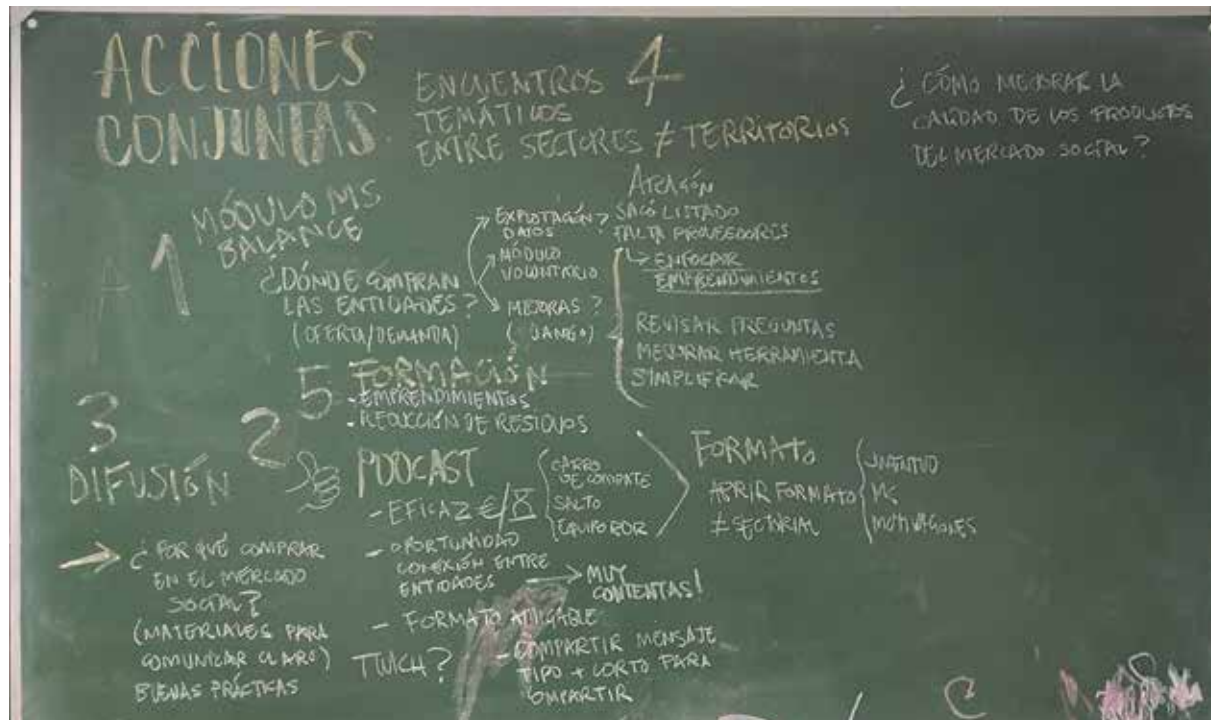 ACCIONES
CONJUNTAS
ENCUENTROS 4
TEMÁTICOS
ENTRE SECTORES ≠ TERRITORIOS
¿CÓMO MEJORAR LA
CALIDAD DE LOS PRODUCTOS
DEL MERCADO SOCIAL?
1
MÓDULO MS
BALANCE
¿DÓNDE COMPRAN
LAS ENTIDADES?
(OFERTA/DEMANDA)
EXPLOTACIÓN?
DATOS
MÓDULO
VOLUNTARIO
MEJORAS?
(DJANGO)
ARAGÓN
SACÓ LISTADO
FALTA PROVEEDORES
ENFOCAR
EMPRENDIMIENTOS
REVISAR PREGUNTAS
MEJORAR HERRAMIENTA
SIMPLIFICAR
5 FORMACIÓN
- EMPRENDIMIENTOS
- REDUCCIÓN DE RESIDUOS
3
DIFUSIÓN
→ ¿POR QUÉ COMPRAR
EN EL MERCADO
SOCIAL?
(MATERIALES PARA
COMUNICAR CLARO)
BUENAS PRÁCTICAS
2
PODCAST
- EFICAZ €/
CARRO
DE COMBATE
SALTO
EQUIPO RDR
- OPORTUNIDAD
CONEXIÓN ENTRE
ENTIDADES
→ MUY
CONTENTAS!
- FORMATO AMIGABLE
TWICH?
- COMPARTIR MENSAJE
TIPO + CORTO PARA
COMPARTIR
FORMATO
ABRIR FORMATO
≠ SECTORIAL
JUVENTUD
MS
MOTIVACIONES